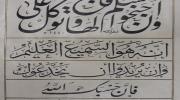 وان جنحوا للسلم فاجنح لها وتوكل على
انه هو السميع العليم
وان يريدوا ان يخدعوك
فان حسبك الله